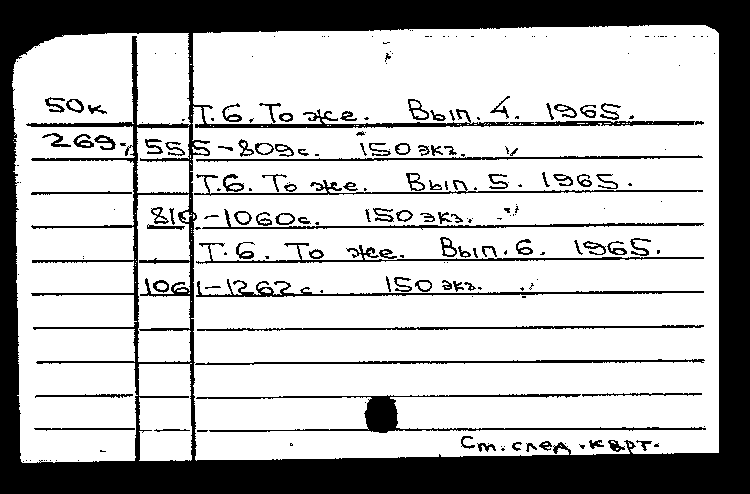 50к Т.6. То же. Вып. 4. 1965.
269. 555-809с. 150 экз. v
Т.6. То же. Вып. 5. 1965.
810-1060с. 150 экз. v
Т.6. То же. Вып. 6. 1965.
1061-1262с. 150 экз. v
Ст. след. карт.